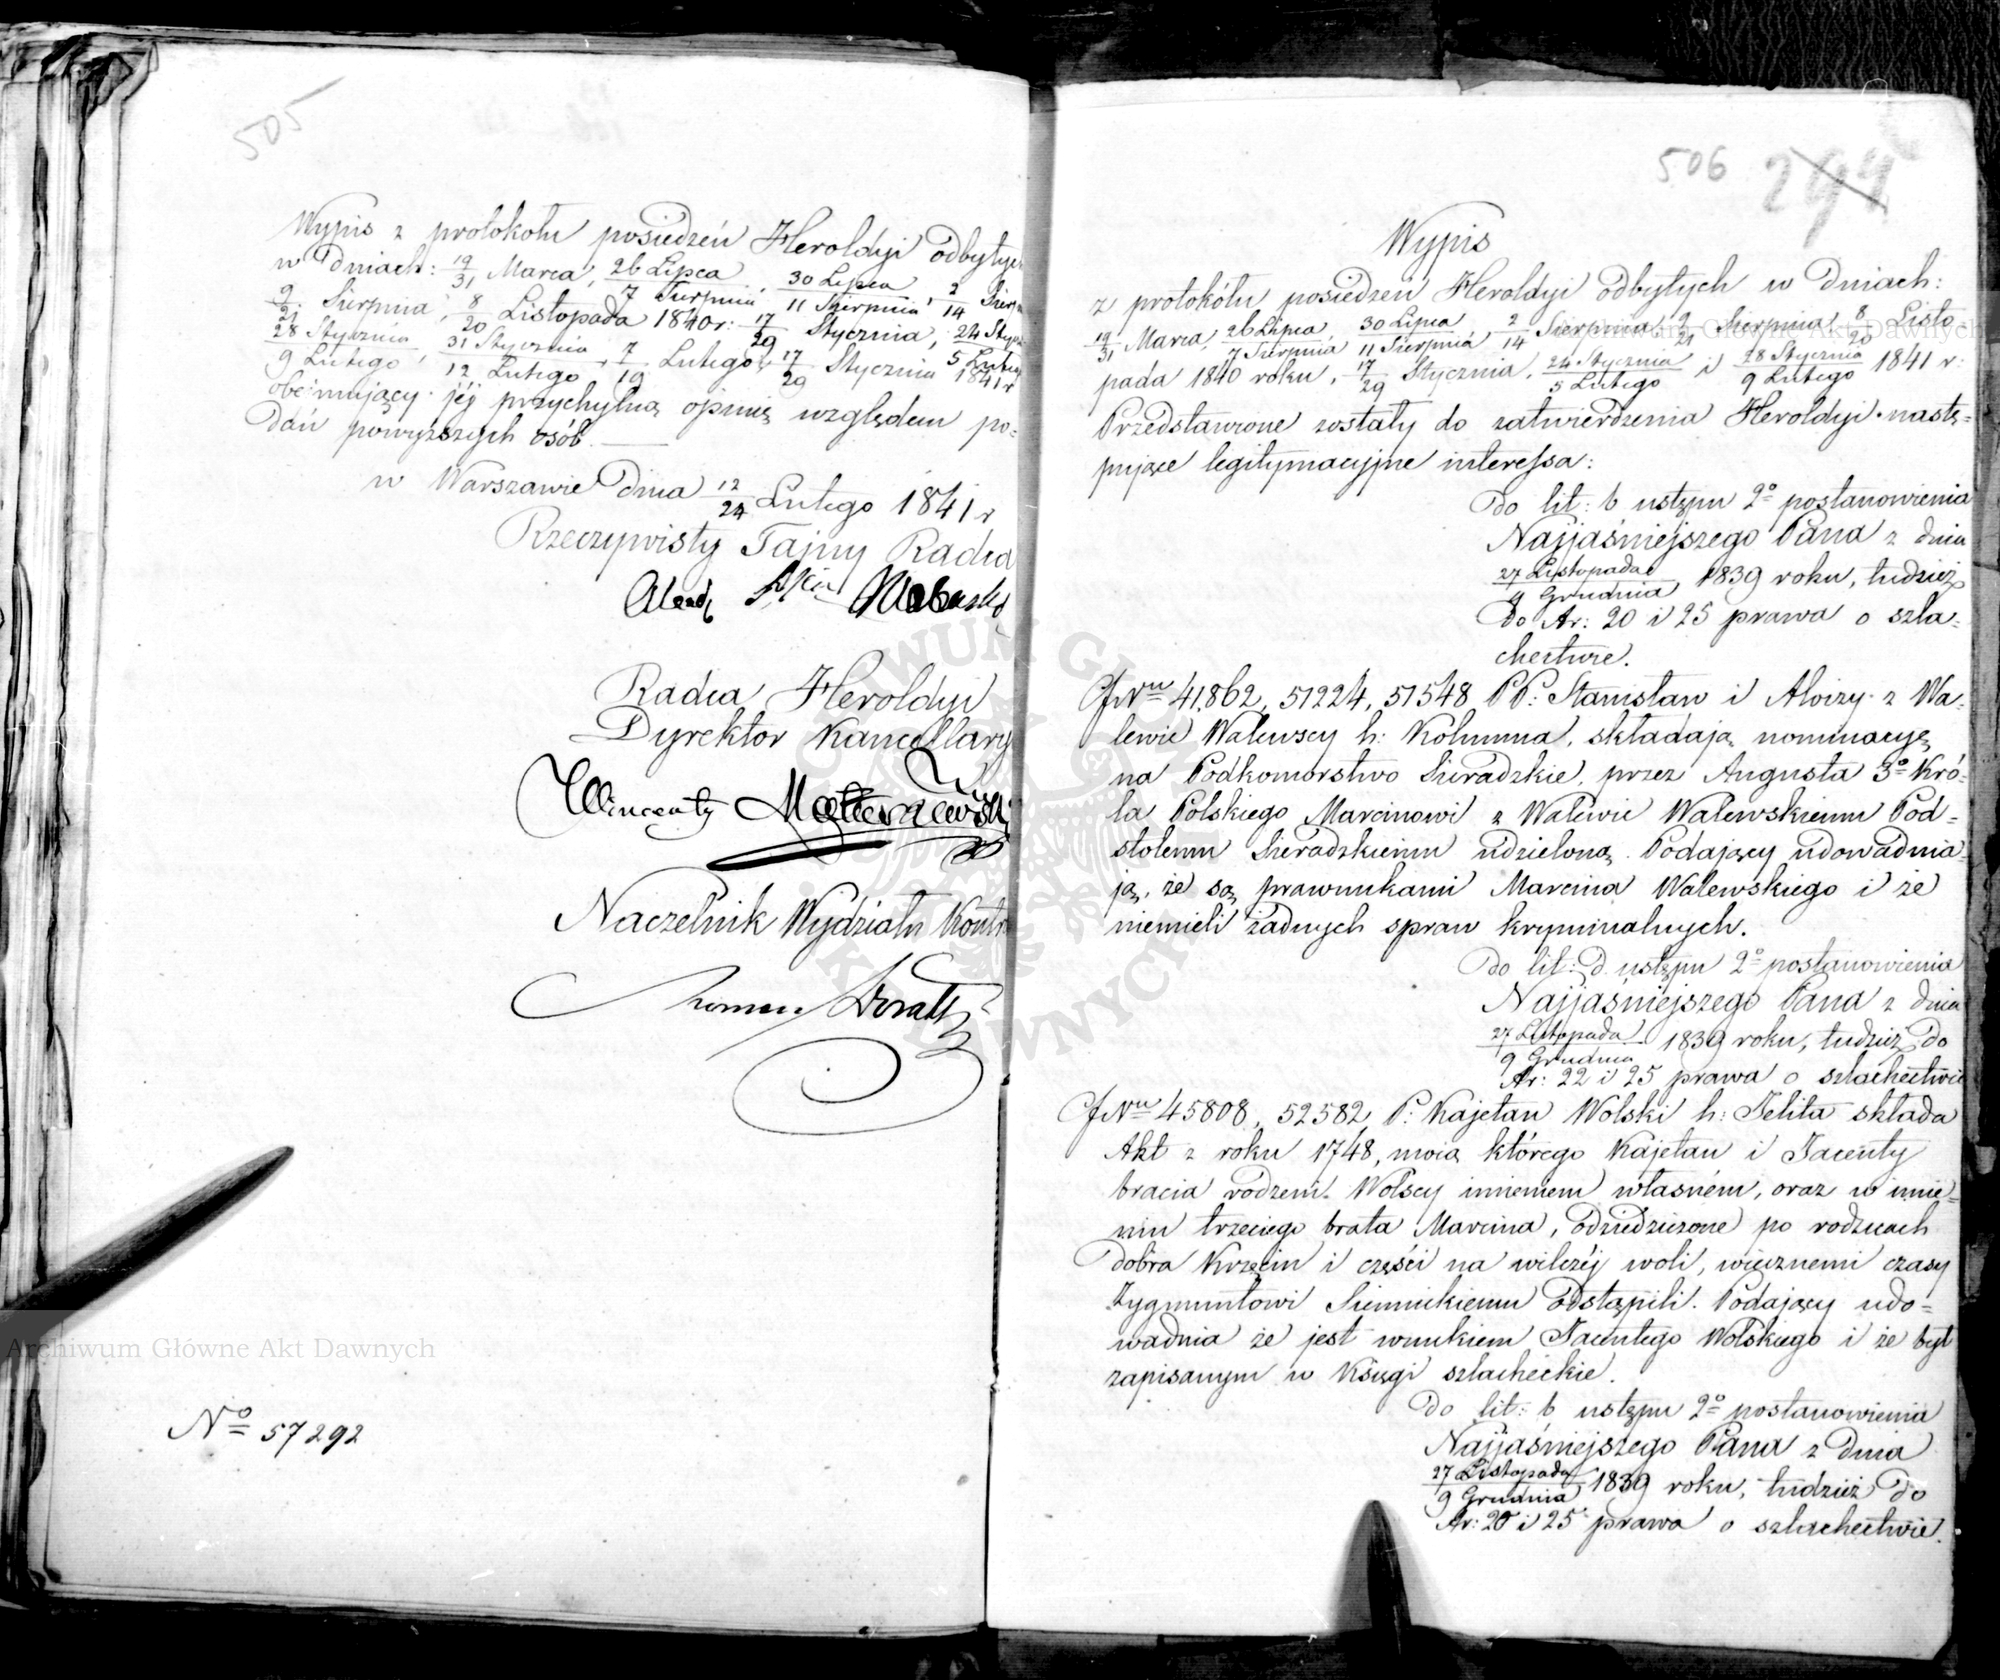 505
Wypis z protokołu posiedzeń Heroldyi odbytych
w Dniach: 19/31 Marca, 26 Lipca/7 Sierpnia, 30 Lipca/11 Sierpnia, 2/14 Sierp
9/21 Sierpnia, 8/20 Listopada 1840 r: 17/29 Stycznia, 24 Stycz/5 Lutego
28 Stycznia/9 Lutego, 31 Stycznia/12 Lutego, 7/19 Lutego, 17/29 Stycznia 1841 r
obejmujący jéj przychylną opinię względem po=
dań powyższych osób.
w Warszawie Dnia 12/24 Lutego 1841 r
Rzeczywisty Tajny Radca
Radca Heroldyi
Dyrektor Kancellary
Wincenty
Naczelnik Wydziału Kontr
Roman
No 57292
506 294
Wypis
z protokółu posiedzeń Heroldyi odbytych w Dniach:
19/31 Marca, 26 Lipca/7 Sierpnia, 30 Lipca/11 Sierpnia, 2/14 Sierpnia, 9/21 Sierpnia 8/20 Listo
pada 1840 roku, 17/29 Stycznia, 24 Stycznia/5 Lutego i 28 Stycznia/9 Lutego 1841 r:
Przedstawione zostały do zatwierdzenia Heroldyi nastę=
pujące legitymacyjne interessa:
Do lit: b ustępu 2o postanowienia
Najjaśniejszego Pana z dnia
27 Listopada/9 Grudnia 1839 roku, tudzież
Do Ar: 20 i 25 prawa o szla=
chectwie.
Nru 41,862, 51224, 51548 PP: Stanisław i Aloizy z Wa=
lewic Walewscy h: Kolumna, składają nominacyę
na Podkomorstwo Sieradzkie, przez Augusta 3o Kró=
la Polskiego Marcinowi z Walewic Walewskiemu Pod=
stolemu Sieradzkiemu udzieloną. Podający udowadnia=
ją, że są prawnukami Marcina Walewskiego i że
niemieli żadnych spraw kryminalnych.
Do lit: D. ustępu 2o postanowienia
Najjaśniejszego Pana z dnia
27 Listopada/9 Grudnia 1839 roku, tudzież Do
Ar: 22 i 25 prawa o szlachectwie
Nru 45808, 52582 P: Kajetan Wolski h: Jelita składa
Akt z roku 1748, mocą którego Kajetan i Jacenty
bracia rodzeni Wolscy imieniem własném, oraz w imie=
niu trzeciego brata Marcina, odziedziczone po rodzicach
Dobra Krzęcin i części na wilczéj woli, wiecznemi czasy
Zygmuntowi Siennickiemu odstąpili. Podający udo=
wadnia że jest wnukiem Jacentego Wolskiego i że był
zapisanym w Księgi szlacheckie.
Do lit: b ustępu 2o postanowienia
Najjaśniejszego Pana z Dnia
27 Listopada/9 Grudnia 1839 roku, tudzież Do
Ar: 20 i 25 prawa o szlachectwie.
Archiwum Główne Akt Dawnych